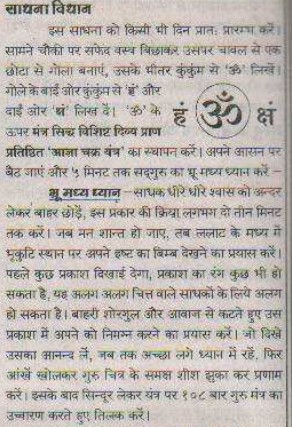 साधना विधान
इस साधना को किसी भी दिन प्रातः प्रारम्भ करें।
सामने चौकी पर सफेद वस्त्र बिछाकर उसपर चावल से एक
छोटा से गोला बनाएं, उसके भीतर कुंकुंम से 'ॐ' लिखें।
गोले के बाईं ओर कुंकुम से 'हं' और
दाईं ओर 'क्षं' लिख दें। 'ॐ' के
ऊपर मंत्र सिद्ध विशिष्ट दिव्य प्राण
हं ॐ क्षं
प्रतिष्ठित 'आज्ञा चक्र यंत्र' का स्थापन करें। अपने आसन पर
बैठ जाएं और ५ मिनट तक सद्गुरु का भ्रू मध्य ध्यान करें –
भ्रू मध्य ध्यान – साधक धीरे धीरे श्वास को अन्दर
लेकर बाहर छोड़ें, इस प्रकार की क्रिया लगभग दो तीन मिनट
तक करें। जब मन शान्त हो जाए, तब ललाट के मध्य में
भृकुटि स्थान पर अपने इष्ट का बिम्ब देखने का प्रयास करें।
पहले कुछ प्रकाश दिखाई देगा, प्रकाश का रंग कुछ भी हो
सकता है, यह अलग अलग चित्त वाले साधकों के लिये अलग
हो सकता है। बाहरी शोरगुल और आवाज से कटते हुए उस
प्रकाश में अपने को निमग्न करने का प्रयास करें। जो दिखे
उसका आनन्द लें, जब तक अच्छा लगे ध्यान में रहें, फिर
आंखें खोलकर गुरु चित्र के समक्ष शीश झुका कर प्रणाम
करें। इसके बाद सिन्दूर लेकर यंत्र पर १०८ बार गुरु मंत्र का
उच्चारण करते हुए तिलक करें।